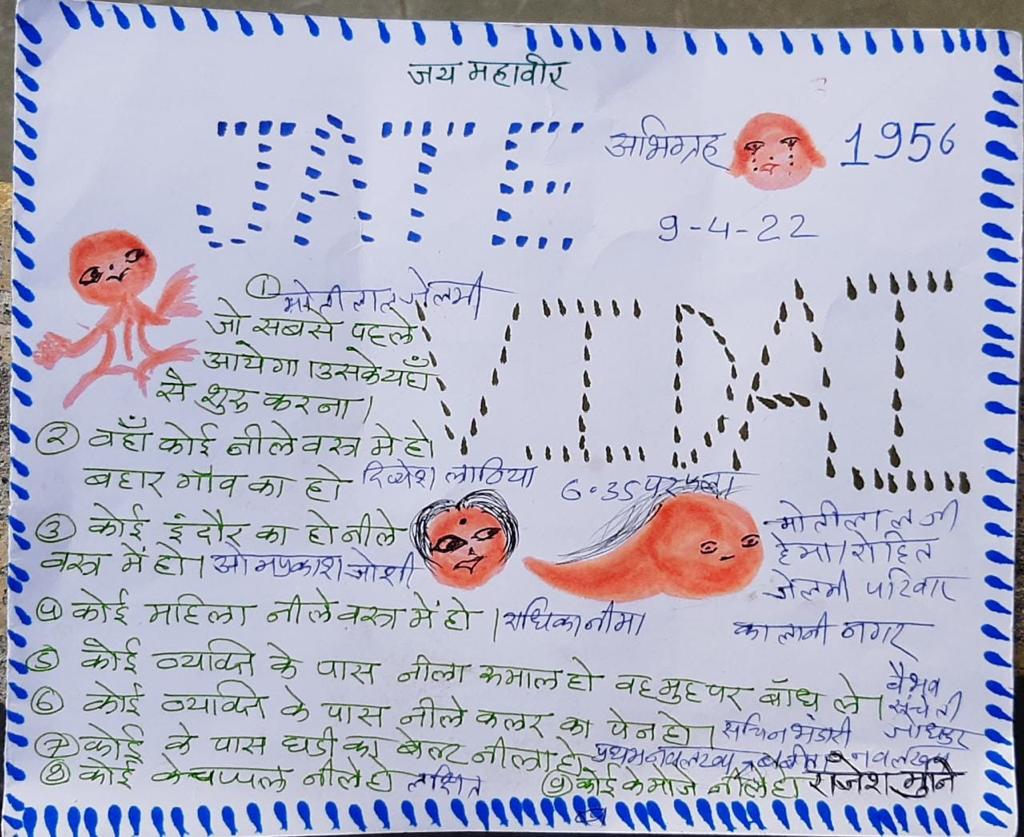 जय महावीर
JATE
अभिग्रह 1956
9-4-22
VIDAI
① जेलमी
जो सबसे पहले
आयेगा। उसके यहाँ
से शुरू करना।
② वहाँ कोई नीले वस्त्र में हो
बहार गाँव का हो दिव्येश लाठिया
6.35 पर
③ कोई इंदौर का हो नीले
वस्त्र में हो। ओमप्रकाश जोशी
मोतीलाल जी
हेमा। रोहित
जेलमी परिवार
कालानी नगर
④ कोई महिला नीले वस्त्र में हो। राधिका नीमा
⑤ कोई व्यक्ति के पास नीला रूमाल हो वह मुह पर बाँध ले। वैभव
⑥ कोई व्यक्ति के पास नीले कलर का पेन हो। सचिन भंडारी
⑦ कोई के पास घडी का बेल्ट नीला हो प्रथम नवलखा
⑧ कोई के चप्पल नीले हो लक्षित
⑨ कोई के मोजे नीले हो राजेश मुाने